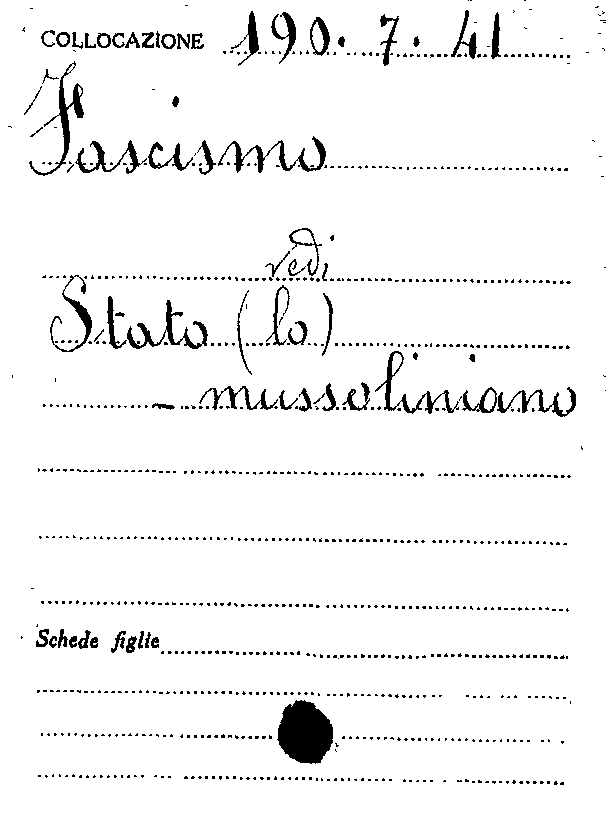 COLLOCAZIONE 190.7.41
Fascismo
vedi
Stato (lo)
- mussoliniano
Schede figlie